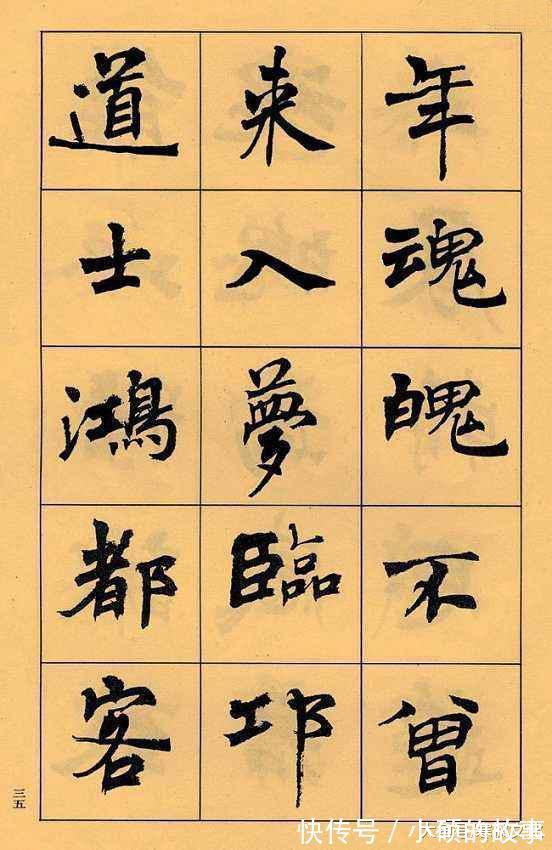 年魂魄不曾
来入夢臨邛
道士鴻都客
三五
快传号 / 小硕的故事